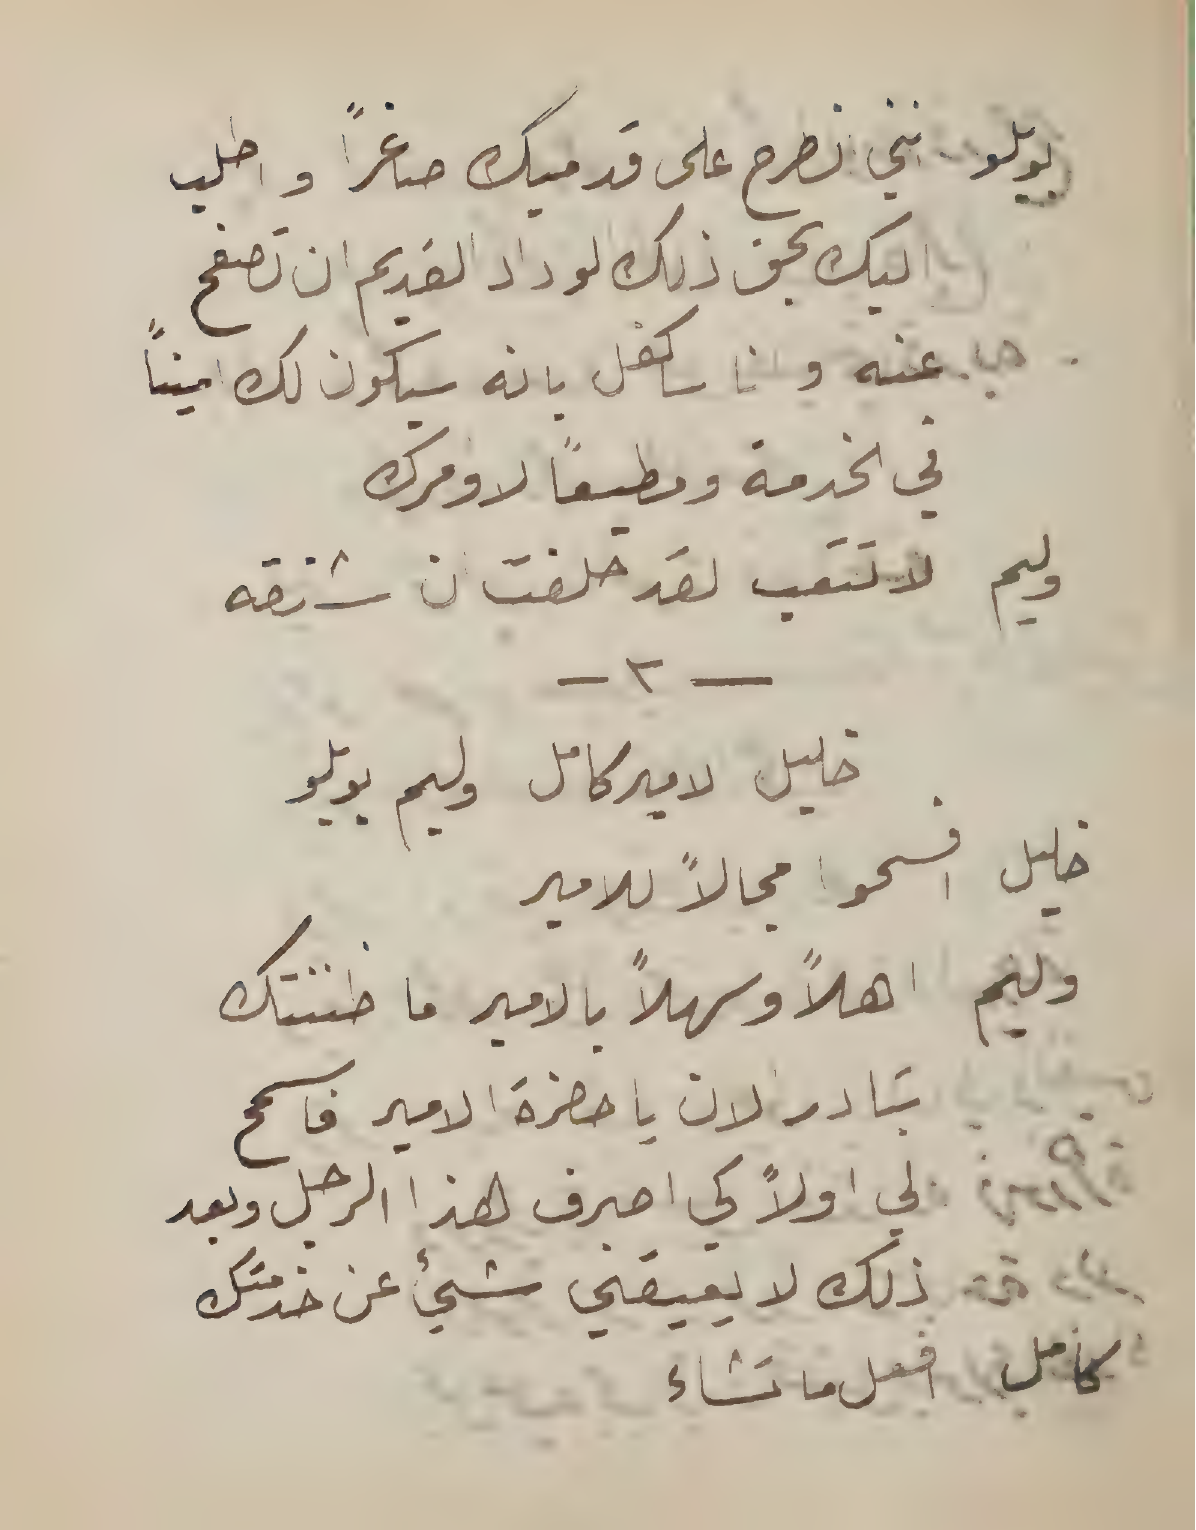 بويلو انني انطرح على قدميك صاغراً و اطلب
اليك بحق ذلك الوداد القديم ان تصفح
عنه و انا ساكفل بانه سيكون لك اميناً
في الخدمة ومطيعاً لاومرك
وليم لا تتعب لقد حلفت ان شنقه
— ٣ —
خليل لامير كامل وليم بويلو
خليل افسحوا مجالاً للامير
وليم اهلاً وسهلاً بالامير ما ظننتك
تبادر لان يا حضرة الامير فاسمح
لي اولاً كي اصرف هذا الرجل وبعد
ذلك لا يعيقني شئ عن خدمتك
كامل افعل ما تشاء